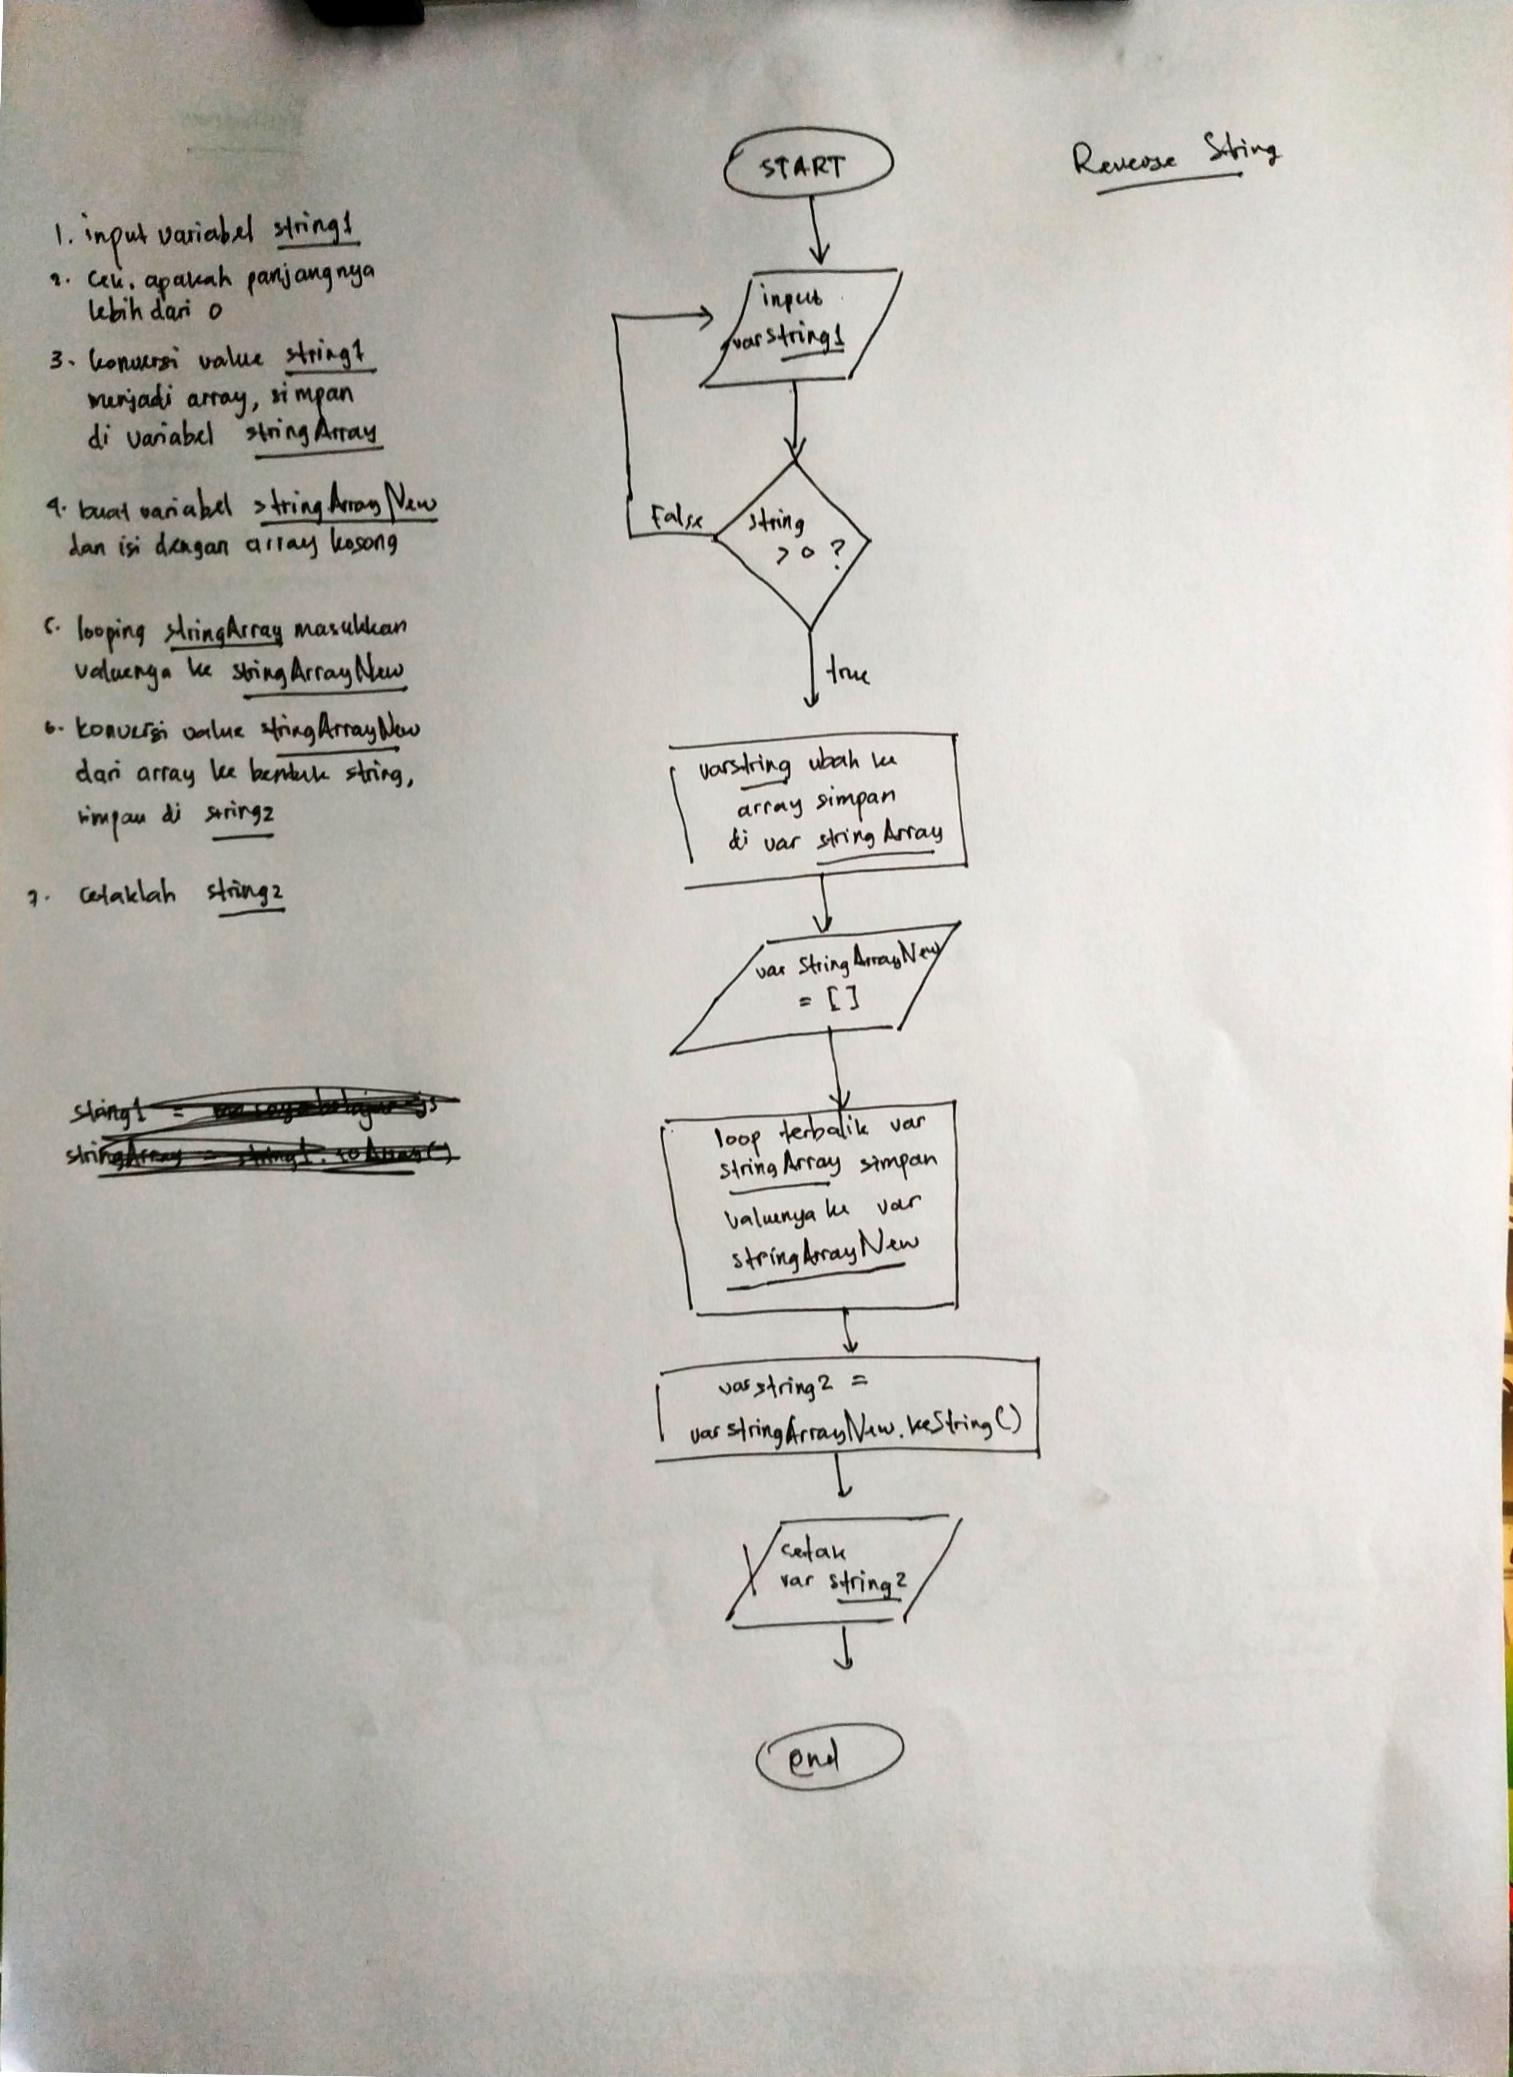 Reverse String
1. input variabel string1
2. cek. apakah panjangnya
lebih dari 0
3. konversi value string1
menjadi array, simpan
di variabel stringArray
4. buat variabel stringArrayNew
dan isi dengan array kosong
5. looping stringArray masukkan
valuenya ke stringArrayNew
6. konversi value stringArrayNew
dari array ke bentuk string,
simpan di string2
7. cetaklah string2
string1 =
stringArray = string1.toArray()
START
input
var string1
string
> 0 ?
False
true
varstring ubah ke
array simpan
di var stringArray
var stringArrayNew
= []
loop terbalik var
stringArray simpan
valuenya ke var
stringArrayNew
var string2 =
var stringArrayNew.keString()
cetak
var string2
end